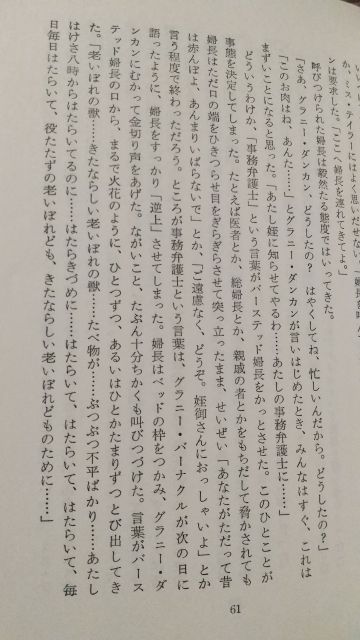 か、ミス・テイラーにはよく思いだせない。「婦長を呼ん
ンは要求した。「ここへ婦長を連れてきてよ。」
呼びつけられた婦長は毅然たる態度ではいってきた。
「さあ、グラニー・ダンカン、どうしたの？ はやくしてね、忙しいんだから。どうしたの？」
「このお肉はね、あんた……」とグラニー・ダンカンが言いはじめたとき、みんなはすぐ、これは
まずいことになると思った。「あたし姪に知らせてやるわ……あたしの事務弁護士に……」
どういうわけか、「事務弁護士」という言葉がバーステッド婦長をかっとさせた。このひとことが
事態を決定してしまった。たとえば医者とか、総婦長とか、親戚の者とかをもちだして脅かされても
婦長はただ口の端をひきつらせ目をぎらぎらさせて突っ立ったまま、せいぜい「あなたがただって昔
は赤んぼよ、あんまりいばらないで」とか、「ご遠慮なく、どうぞ。姪御さんにおっしゃいよ」とか
言う程度で終わっただろう。ところが事務弁護士という言葉は、グラニー・バーナクルが次の日に
語ったように、婦長をすっかり「逆上」させてしまった。婦長はベッドの枠をつかみ、グラニー・ダ
ンカンにむかって金切り声をあげた。ながいこと、たぶん十分ちかくも叫びつづけた。言葉がバース
テッド婦長の口から、まるで火花のように、ひとつずつ、あるいはひとかたまりずつとび出してき
た。「老いぼれの獣……きたならしい老いぼれの獣……たべ物が……ぶつぶつ不平ばかり……あたし
はけさ八時からはたらいてるのに……はたらきづめに……はたらいて、はたらいて、はたらいて、毎
日毎日はたらいて、役たたずの老いぼれども、きたならしい老いぼれどものために……」
61